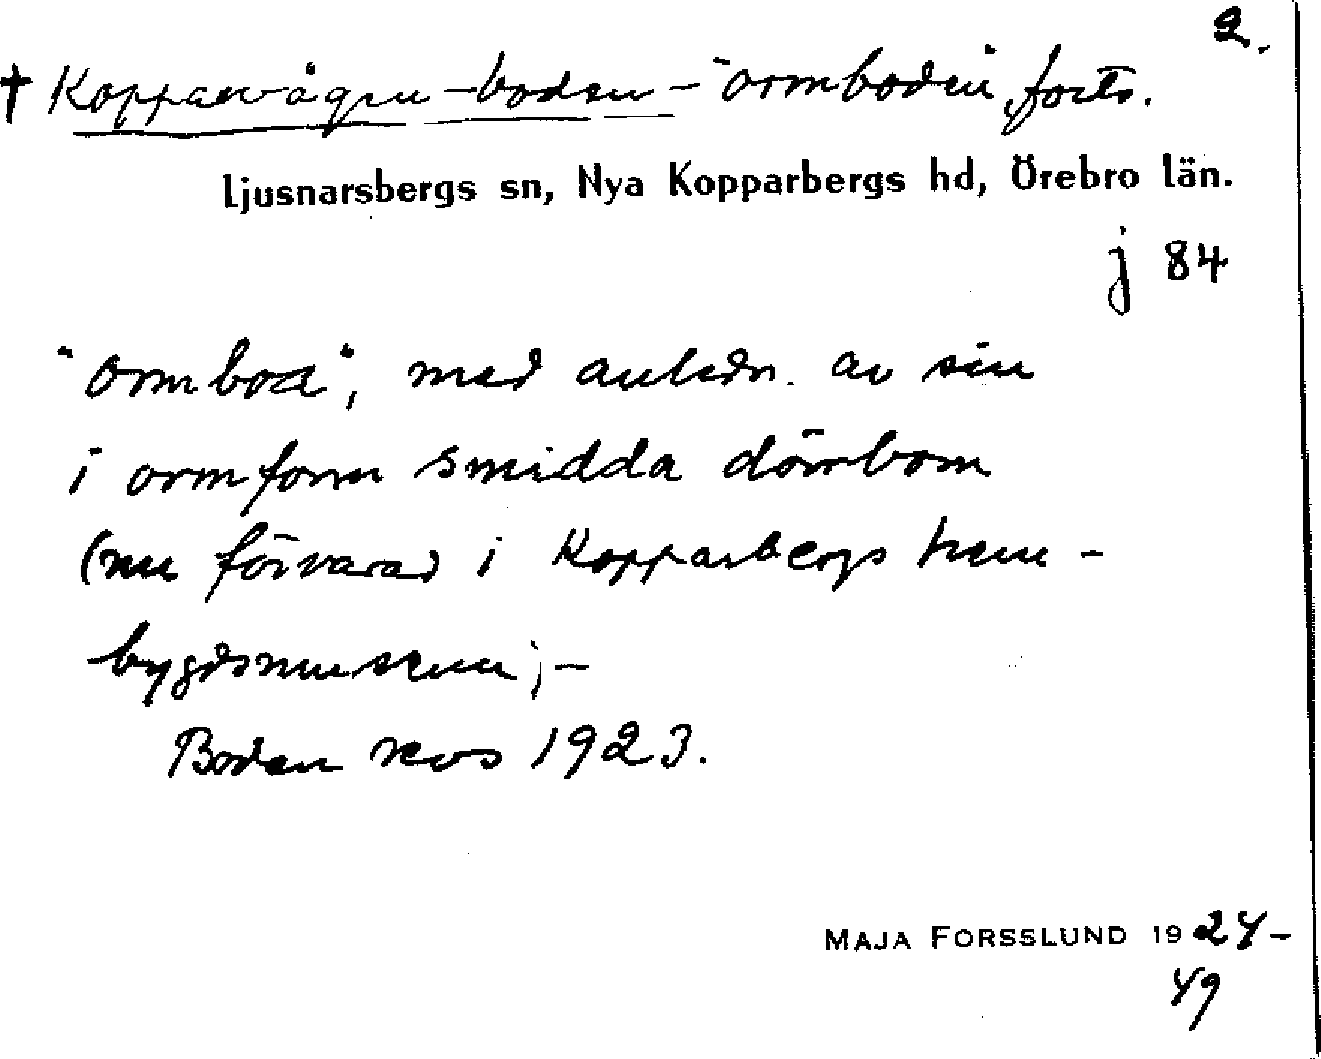 2.
† Kopparvågen-boden - "ormboden", forts.
Ljusnarsbergs sn, Nya Kopparbergs hd, Örebro län.
j 84
"Ormboa", med anledn. av sin
i ormform smidda dörrbom
(nu förvarad i Kopparbergs hem-
bygdsmuseum; -
Boden revs 1923.
MAJA FORSSLUND 1924-
49